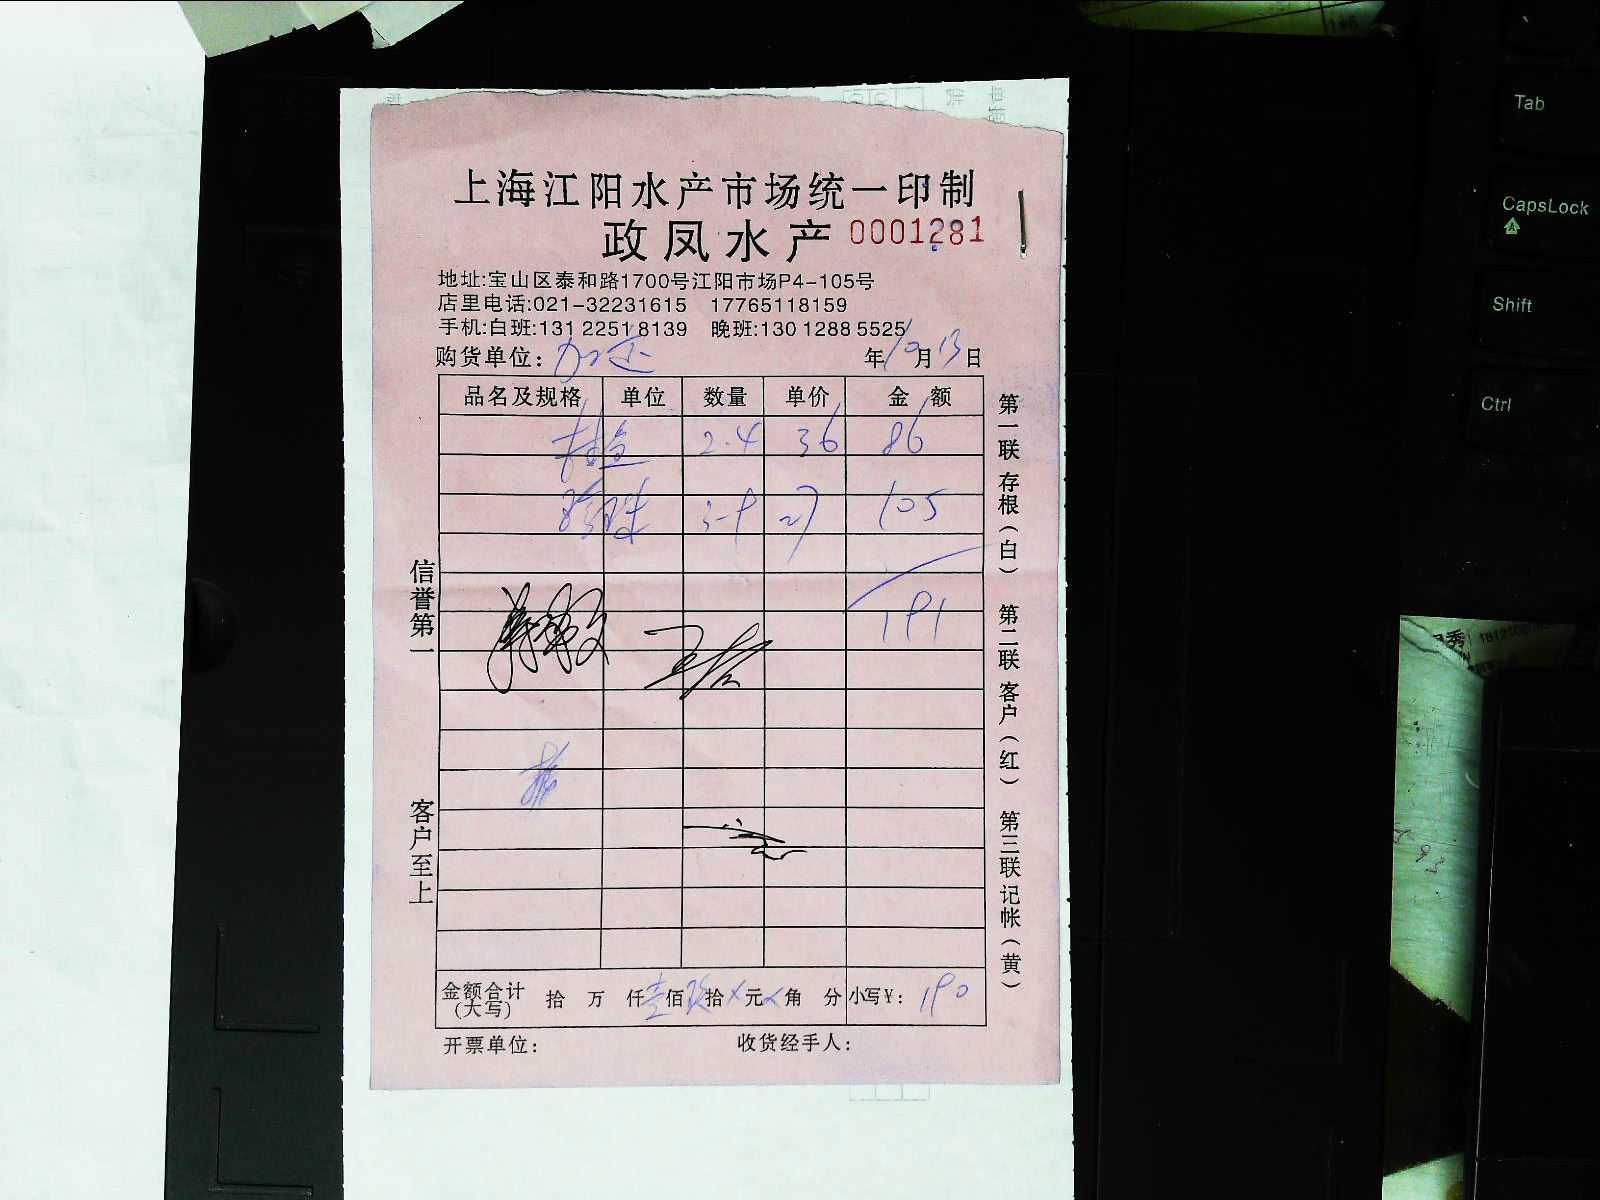 上海江阳水产市场统一印制
政凤水产 0001281
地址:宝山区泰和路1700号江阳市场P4-105号
店里电话:021-32231615 17765118159
手机:白班:131 2251 8139 晚班:130 1288 5525
购货单位: 年10月13日
品名及规格 单位 数量 单价 金额
2.4 36 86
珍珠 3.9 27 105
191
金额合计(大写) 拾 万 仟壹佰玖拾×元×角 分 小写¥: 190
开票单位: 收货经手人:
信誉第一 客户至上
第一联 存根(白) 第二联 客户(红) 第三联 记帐(黄)
Tab
CapsLock
Shift
Ctrl